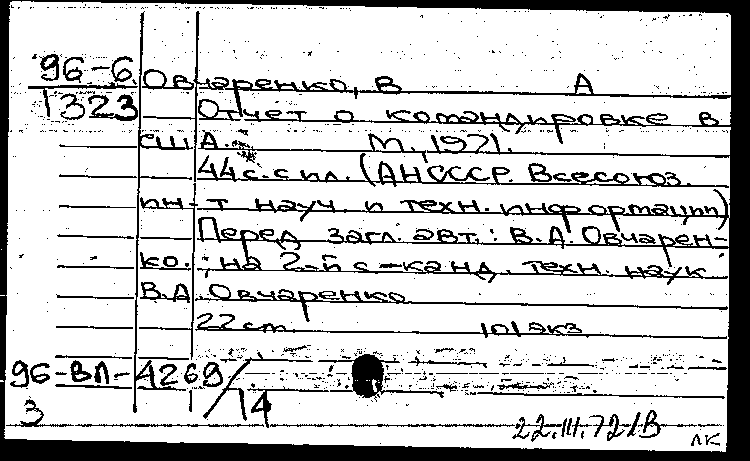 96-6 Овчаренко, В А
1323 Отчет о командировке в
США. М., 1971.
44 с. с ил. (АН СССР. Всесоюз.
ин-т науч. и техн. информации)
Перед загл. авт.: В.А. Овчарен-
ко.; на 2-й с-канд. техн. наук
В.А. Овчаренко
22 см. 101 экз
96-ВЛ-4269/14
3
22.III.72 1В лк